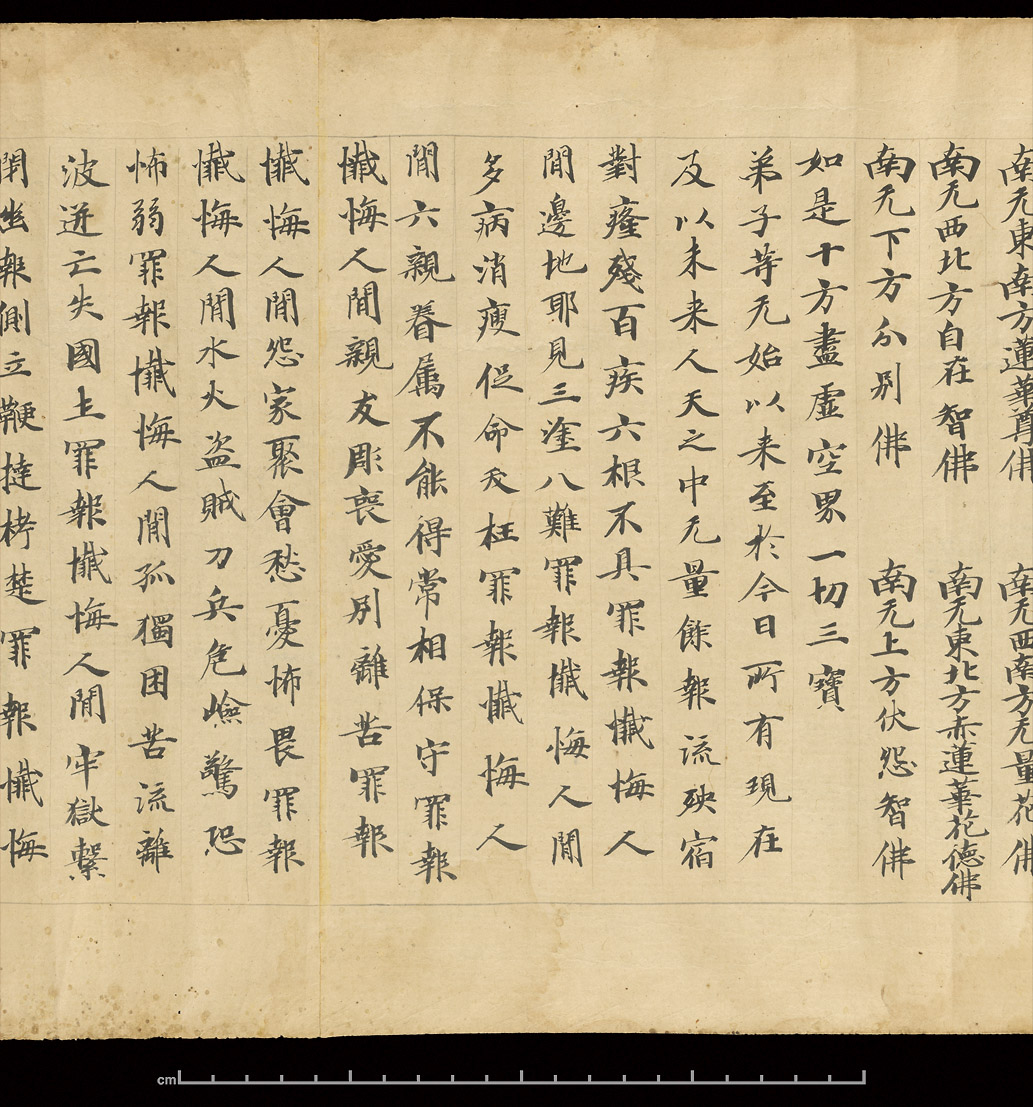 南无東南方蓮華尊佛 南无西南方无量花佛
南无西北方自在智佛 南无東北方赤蓮華花德佛
南无下方分別佛 南无上方伏怨智佛
如是十方盡虛空界一切三寶
弟子等无始以来至於今日所有現在
及以未来人天之中无量餘報流殃宿
對癃殘百疾六根不具罪報懺悔人
間邊地耶見三塗八難罪報懺悔人間
多病消瘦促命夭枉罪報懺悔人
間六親眷属不能得常相保守罪報
懺悔人間親友彫喪愛別離苦罪報
懺悔人間怨家聚會愁憂怖畏罪報
懺悔人間水火盜賊刀兵危嶮驚恐
怖弱罪報懺悔人間孤獨困苦流離
波迸亡失國土罪報懺悔人間牢獄繫
閉幽執側立鞭撻栲楚罪報懺悔